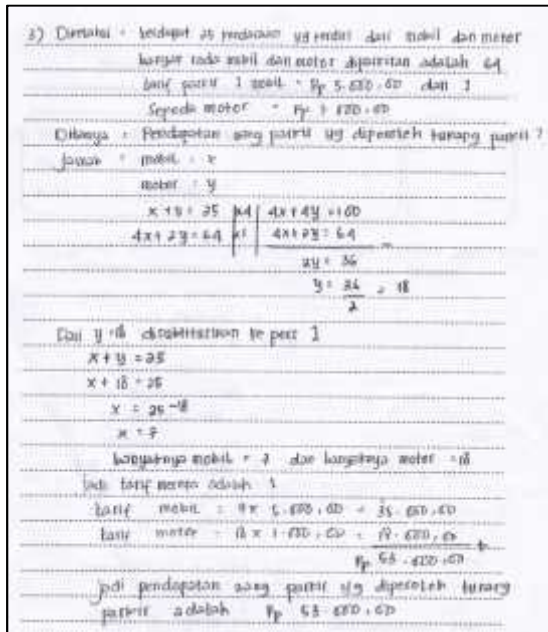 3) Diketahui : terdapat 25 kendaraan yg terdiri dari mobil dan motor
banyak roda mobil dan motor diparkiran adalah 64
tarif parkir 1 mobil = Rp 5.000,00 dan 1
Sepeda motor = Rp 1.000,00
Ditanya : Pendapatan uang parkir yg diperoleh tukang parkir ?
Jawab : mobil = x
motor = y
x + y = 25 | x4 | 4x + 4y = 100
4x + 2y = 64 | x1 | 4x + 2y = 64 -
2y = 36
y = 36/2 = 18
Dari y = 18 disubtitusikan ke pers 1
x + y = 25
x + 18 = 25
x = 25 - 18
x = 7
banyaknya mobil = 7 dan banyaknya motor = 18
Jadi tarif mereka adalah
tarif mobil = 7 x 5.000,00 = 35.000,00
tarif motor = 18 x 1.000,00 = 18.000,00 +
Rp 53.000,00
jadi pendapatan uang parkir yg diperoleh tukang
parkir adalah Rp 53.000,00